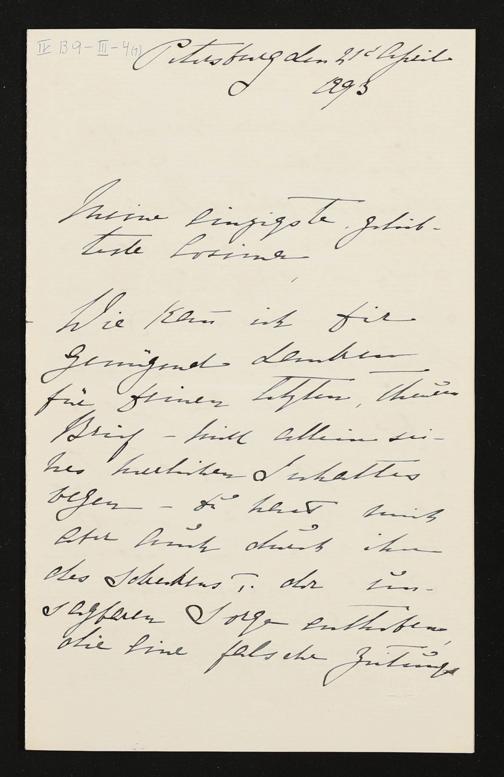 IV B 9-III-4(1)
Petersburg den 21t April
1893
Meine einzigste, gelieb-
teste Cosima
Wie kan ich Dir
genügend danken
für Deinen letzten, theuren
Brief – nicht allein sei-
nes herrlichen Inhaltes
wegen – Du hast mich
aber auch durch ihn
des Schreckens u. der un-
sagbaren Sorge enthoben,
die eine falsche Zeitungs